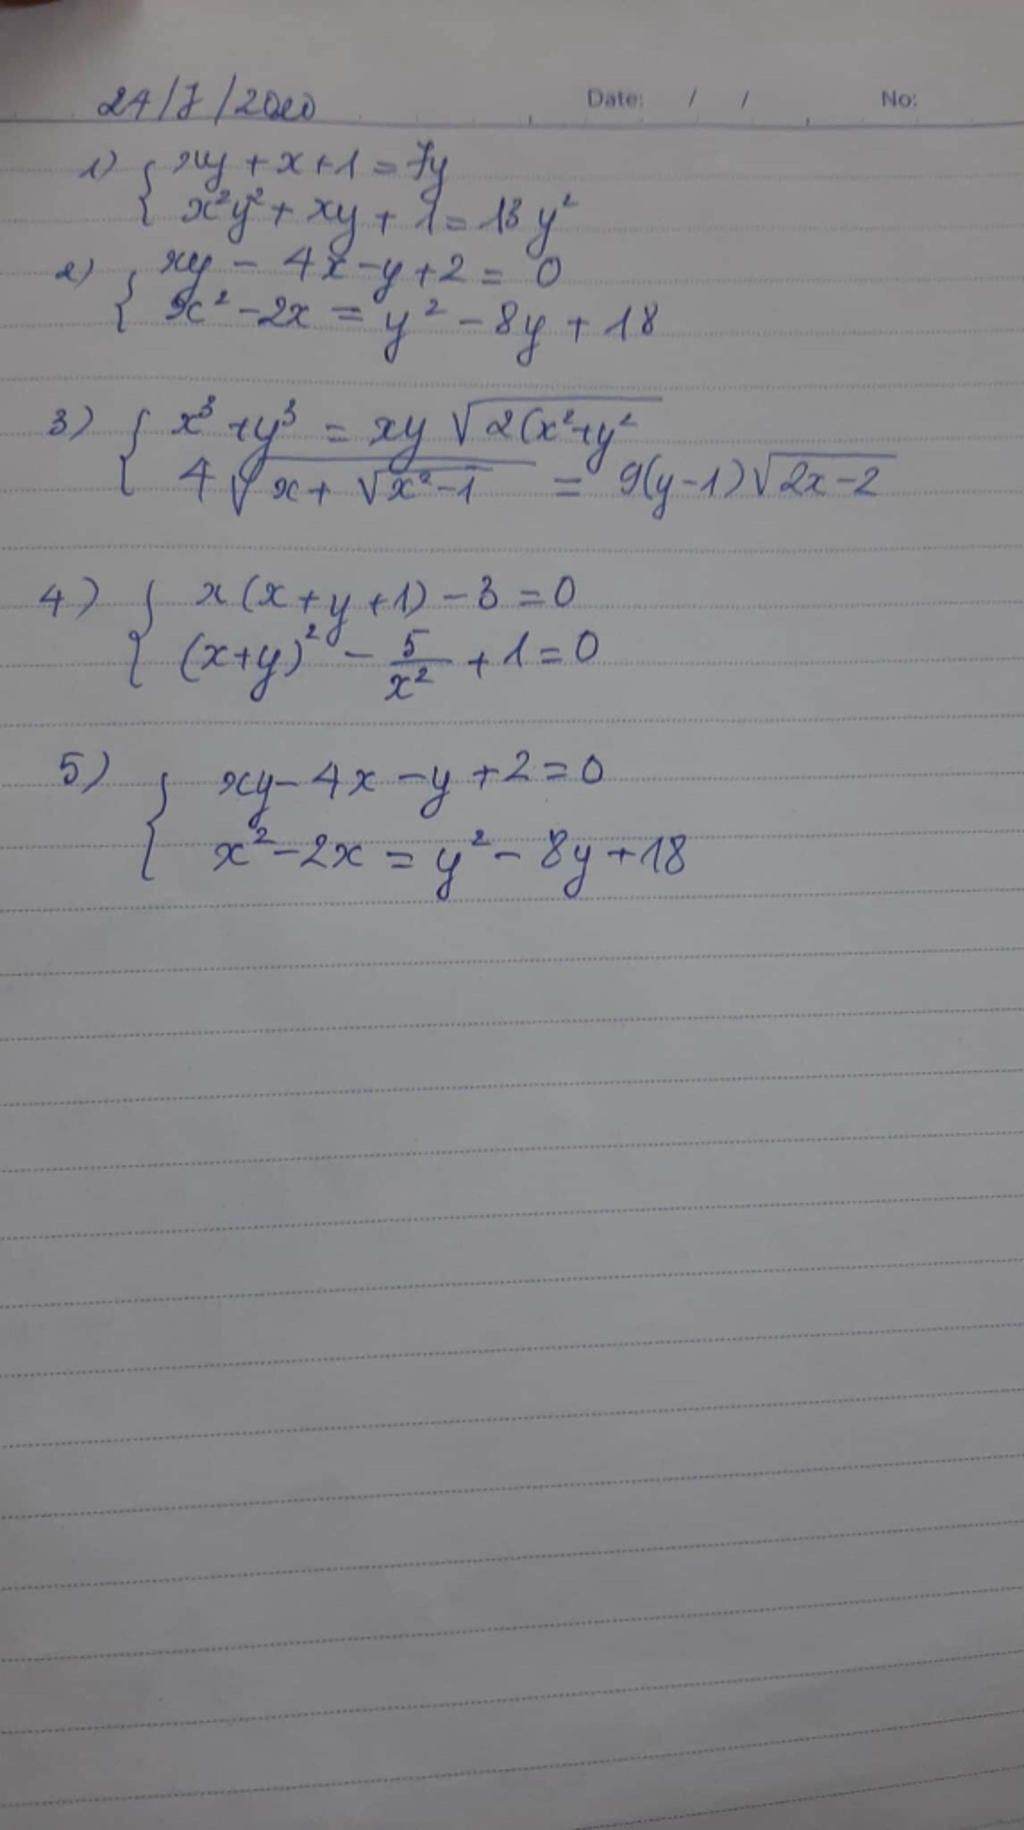 24/7/2020 Date: / / No:
1) { xy + x + 1 = 7y
x²y² + xy + 1 = 13y²
2) { xy - 4x - y + 2 = 0
x² - 2x = y² - 8y + 18
3) { x³ + y³ = xy √2(x²+y²
4√x + √x²-1 = 9(y-1)√2x-2
4) { x(x+y+1) - 3 = 0
(x+y)² - 5/x² + 1 = 0
5) { xy - 4x - y + 2 = 0
x² - 2x = y² - 8y + 18